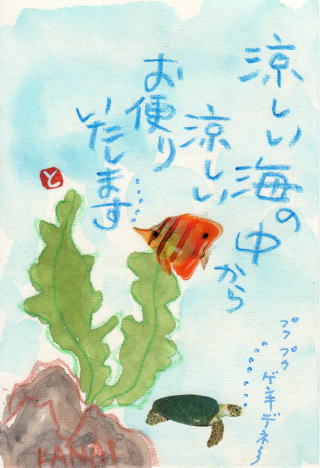 涼しい海の中から
涼しい
お便り
いたします
と
プクプク
ゲンキデネ〜